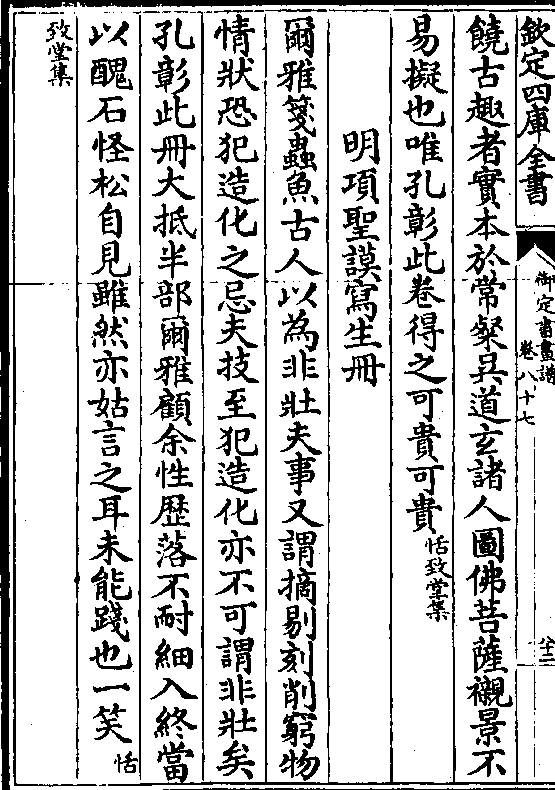 欽定四庫全書
御定書畫譜
卷八十七
饒古趣者實本於常粲吳道玄諸人圖佛菩薩襯景不
易擬也唯孔彰此卷得之可貴可貴恬致堂集
明項聖謨寫生冊
爾雅箋蟲魚古人以為非壯夫事又謂摘剔刻削窮物
情狀恐犯造化之忌夫技至犯造化亦不可謂非壯矣
孔彰此冊大抵半部爾雅顧余性歷落不耐細入終當
以醜石怪松自見雖然亦姑言之耳未能踐也一笑恬
致堂集